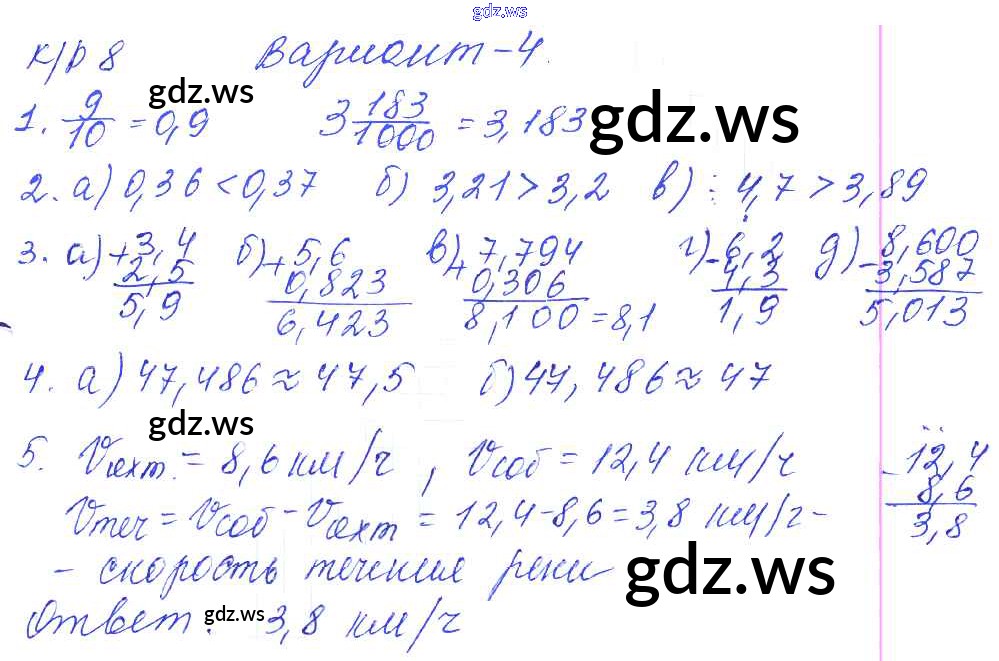 gdz.ws
К/Р 8 Вариант-4.
gdz.ws
1. 9/10 = 0,9 3 183/1000 = 3,183
gdz.ws
2. а) 0,36 < 0,37 б) 3,21 > 3,2 в) 4,7 > 3,89
3. а) + 3,4 б) + 5,6 в) + 7,794 г) - 6,2 д) - 8,600
2,5 0,823 0,306 4,3 3,587
5,9 6,423 8,100 = 8,1 1,9 5,013
4. а) 47,486 ≈ 47,5 б) 47,486 ≈ 47
gdz.ws
5. Vяхт. = 8,6 км/ч, Vсоб = 12,4 км/ч - 12,4
8,6
Vтеч = Vсоб - Vяхт = 12,4-8,6 = 3,8 км/ч - 3,8
- скорость течения реки
gdz.ws
gdz.ws
Ответ: 3,8 км/ч